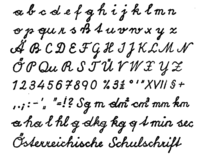 a b c d e f g h i j k l m n
o p q u r s ß t u v w x y z
A B C D E F G H I J K L M N
Ö P Qu R S T Ü V W X Y Z
1 2 3 4 5 6 7 8 9 0 % 3 ½ ° ' " XVII § +
. , ; : - ' „ " = !? Sg m dm² cm³ mm km
a ha l hl g dkg kg q t min sec
Österreichische Schulschrift